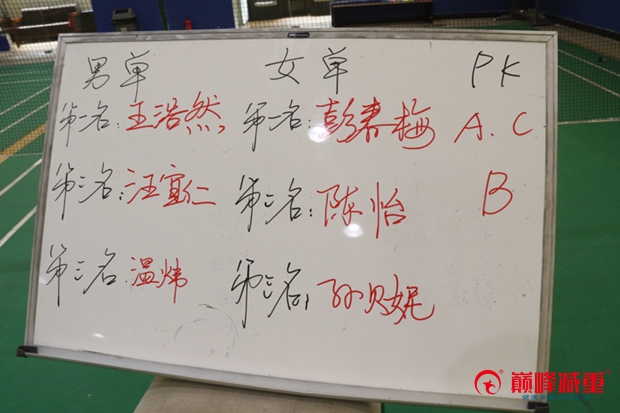 男单 女单 PK
第一名:王浩然 第一名:彭春梅 A.C
第二名:汪宜仁 第二名:陈怡 B
第三名:温炜 第三名:孙贝妮
巅峰减重